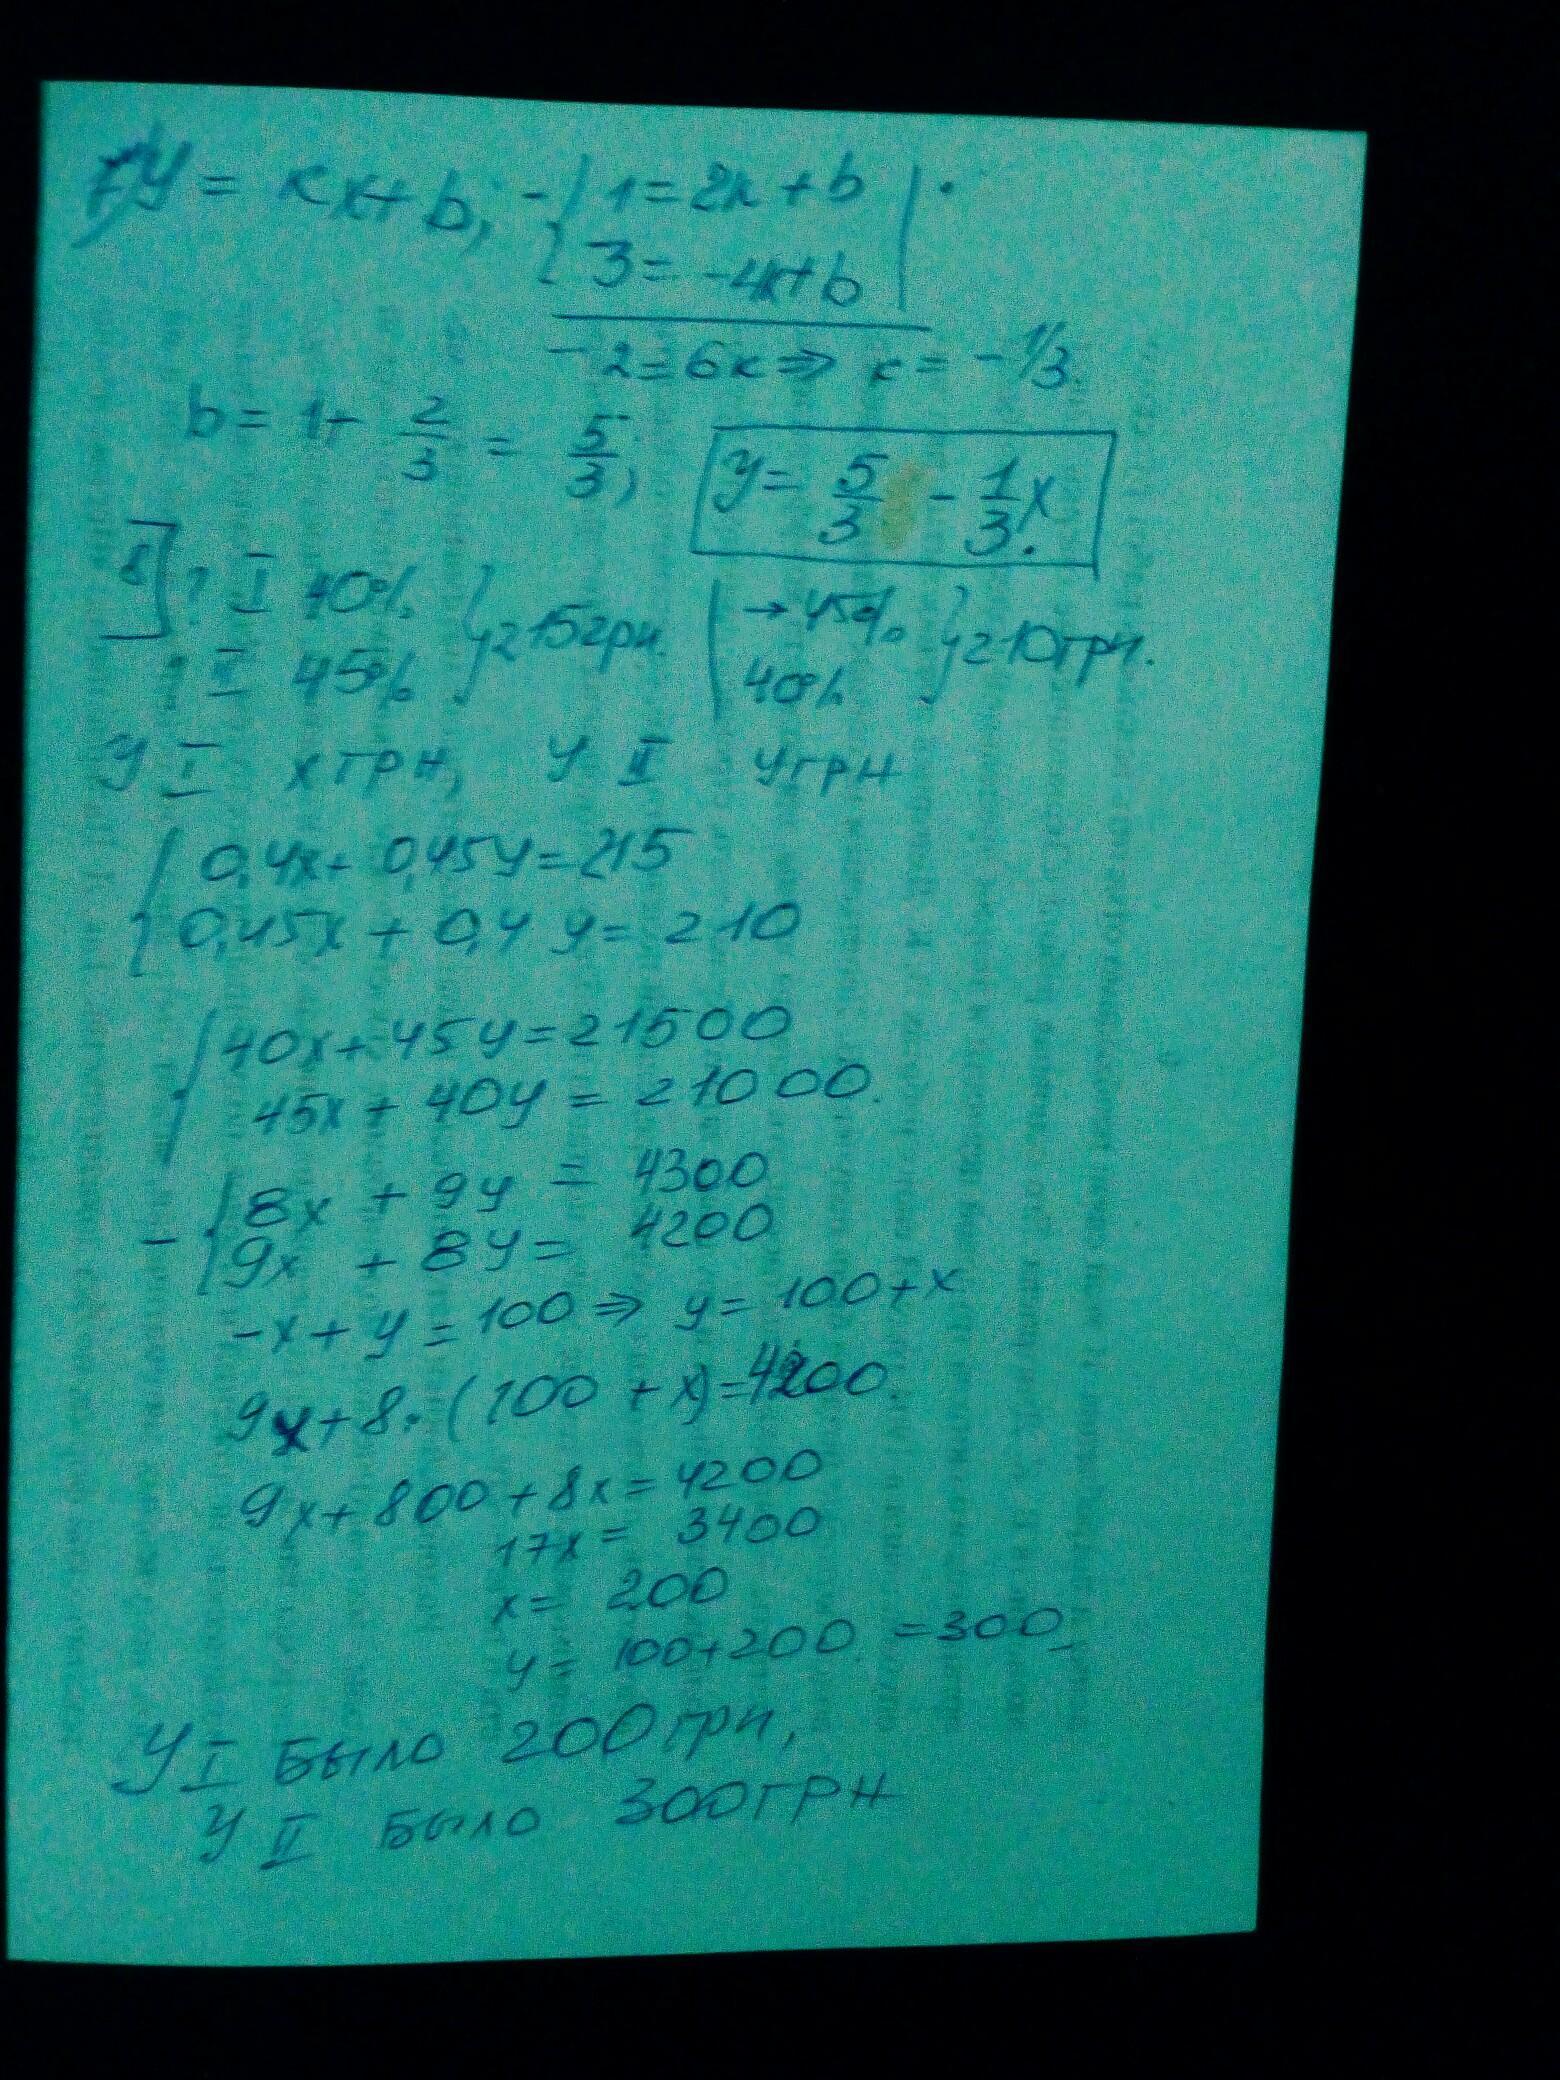 7) y = kx + b, - { 1 = 2k + b
3 = -4k + b
-2 = 6k ⇒ k = -1/3.
b = 1 + 2/3 = 5/3, y = 5/3 - 1/3 x.
8] ? I 40% } 215 грн. | → 45% } 210 грн.
II 45% 40%
У I x грн, У II y грн
{ 0,4x + 0,45y = 215
0,45x + 0,4y = 210
{ 40x + 45y = 21500
45x + 40y = 21000.
- { 8x + 9y = 4300
9x + 8y = 4200
-x + y = 100 ⇒ y = 100 + x
9x + 8·(100 + x) = 4200.
9x + 800 + 8x = 4200
17x = 3400
x = 200
y = 100 + 200 = 300
У I было 200 грн,
У II было 300 грн